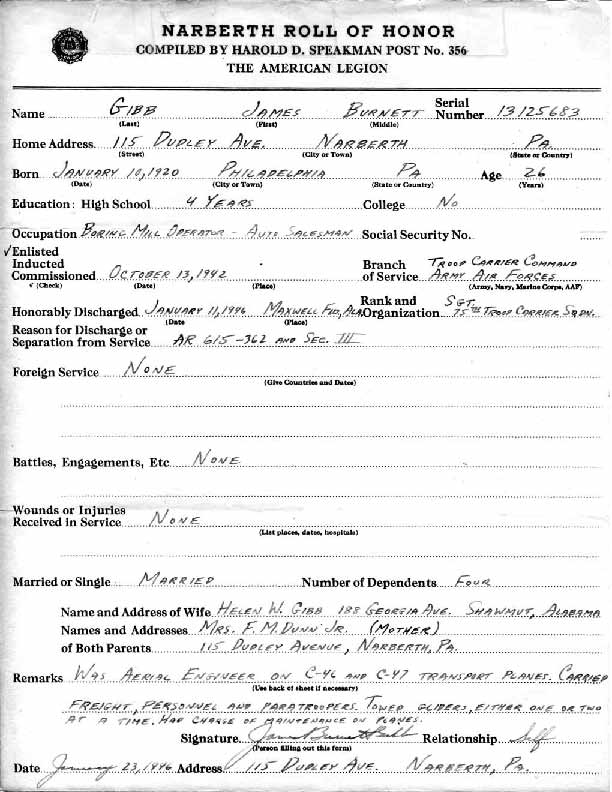 NARBERTH ROLL OF HONOR
COMPILED BY HAROLD D. SPEAKMAN POST No. 356
THE AMERICAN LEGION
Name GIBB JAMES BURNETT Serial Number 13125683
(Last) (First) (Middle)
Home Address 115 DUDLEY AVE. NARBERTH PA.
(Street) (City or Town) (State or Country)
Born JANUARY 10, 1920 PHILADELPHIA PA Age 26
(Date) (City or Town) (State or Country) (Years)
Education: High School 4 YEARS College NO
Occupation BORING MILL OPERATOR - AUTO SALESMAN Social Security No.
✓Enlisted
Inducted
Commissioned OCTOBER 13, 1942 Branch of Service TROOP CARRIER COMMAND ARMY AIR FORCES
✓ (Check) (Date) (Place) (Army, Navy, Marine Corps, AAF)
Honorably Discharged JANUARY 11, 1946 MAXWELL FLD, ALA Rank and Organization SGT. 75TH TROOP CARRIER SQDN.
(Date (Place)
Reason for Discharge or
Separation from Service AR 615-362 AND SEC. III
Foreign Service NONE
(Give Countries and Dates)
Battles, Engagements, Etc NONE
Wounds or Injuries
Received in Service NONE
(List places, dates, hospitals)
Married or Single MARRIED Number of Dependents FOUR
Name and Address of Wife HELEN W. GIBB 188 GEORGIA AVE. SHAWMUT, ALABAMA
Names and Addresses MRS. F. M. DUNN JR. (MOTHER)
of Both Parents 115 DUDLEY AVENUE, NARBERTH, PA.
Remarks WAS AERIAL ENGINEER ON C-46 AND C-47 TRANSPORT PLANES. CARRIED
(Use back of sheet if necessary)
FREIGHT, PERSONNEL AND PARATROOPERS. TOWED GLIDERS, EITHER ONE OR TWO
AT A TIME. HAD CHARGE OF MAINTENANCE ON PLANES.
Signature James Burnett Gibb Relationship Self
(Person filling out this form)
Date January 23, 1946 Address 115 DUDLEY AVE. NARBERTH, PA.